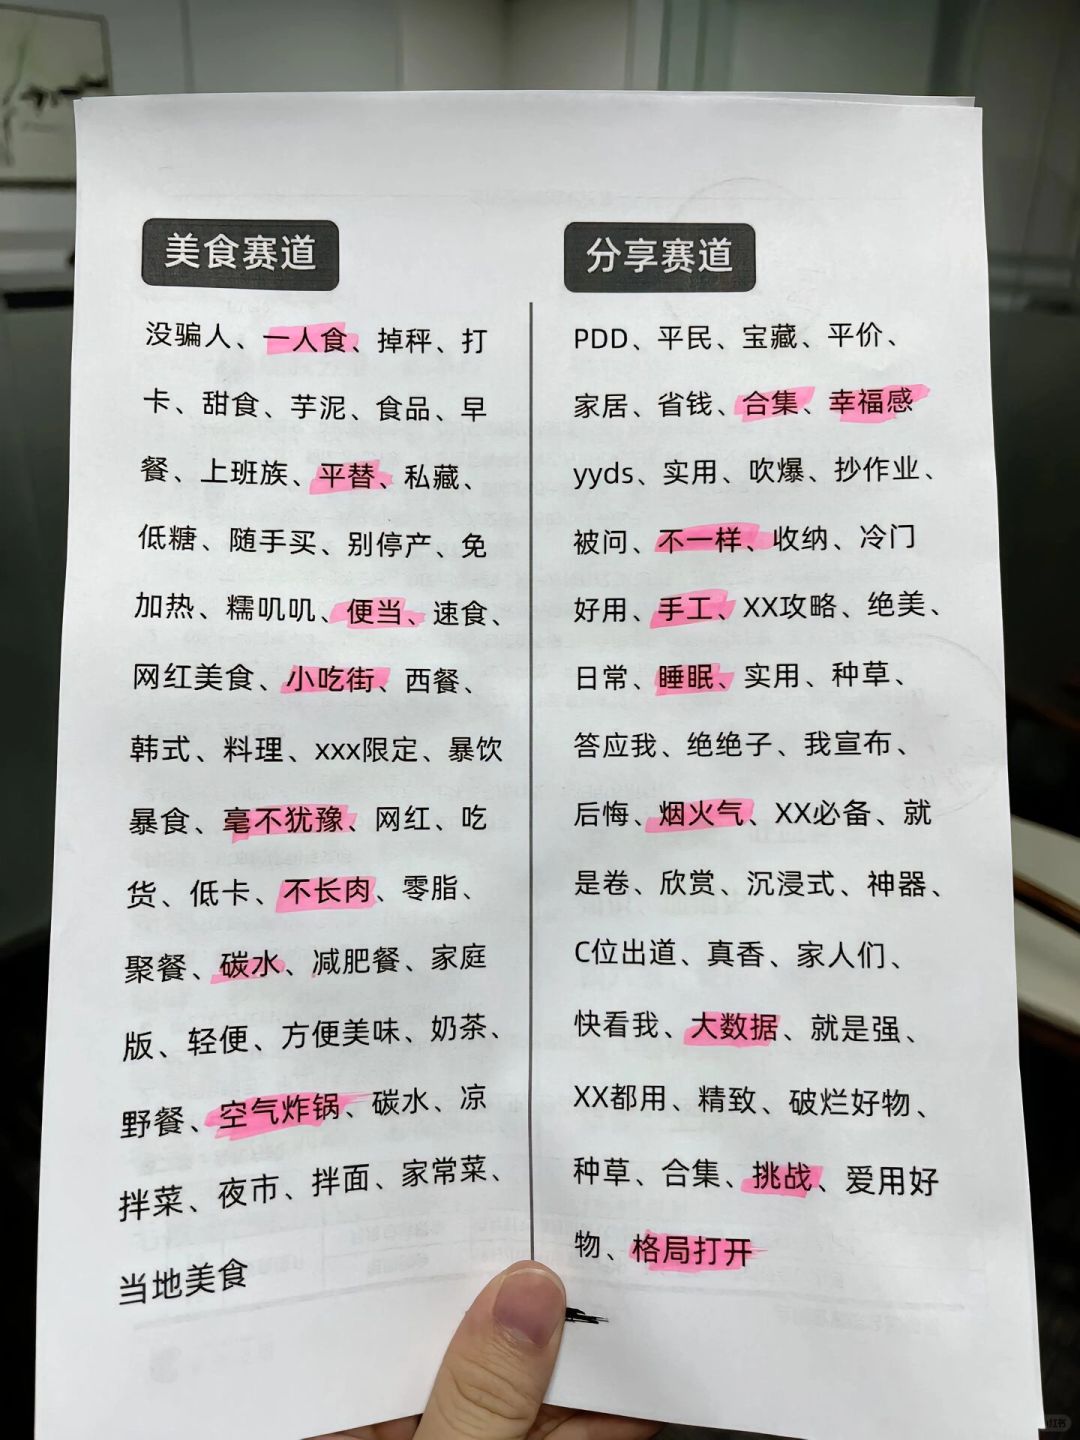 美食赛道
没骗人、一人食、掉秤、打
卡、甜食、芋泥、食品、早
餐、上班族、平替、私藏、
低糖、随手买、别停产、免
加热、糯叽叽、便当、速食、
网红美食、小吃街、西餐、
韩式、料理、xxx限定、暴饮
暴食、毫不犹豫、网红、吃
货、低卡、不长肉、零脂、
聚餐、碳水、减肥餐、家庭
版、轻便、方便美味、奶茶、
野餐、空气炸锅、碳水、凉
拌菜、夜市、拌面、家常菜、
当地美食
分享赛道
PDD、平民、宝藏、平价、
家居、省钱、合集、幸福感
yyds、实用、吹爆、抄作业、
被问、不一样、收纳、冷门
好用、手工、XX攻略、绝美、
日常、睡眠、实用、种草、
答应我、绝绝子、我宣布、
后悔、烟火气、XX必备、就
是卷、欣赏、沉浸式、神器、
C位出道、真香、家人们、
快看我、大数据、就是强、
XX都用、精致、破烂好物、
种草、合集、挑战、爱用好
物、格局打开